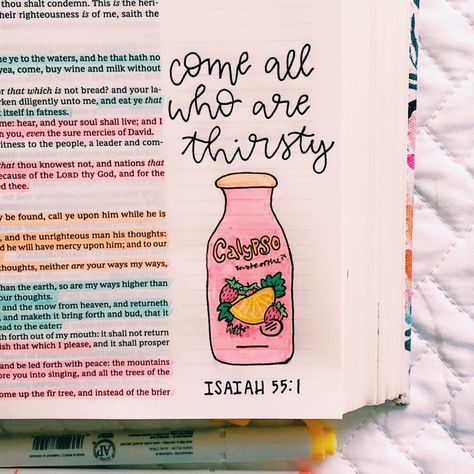 thou shalt condemn. This is the heri-
Their righteousness is of me, saith the
ne ye to the waters, and he that hath no
yea, come, buy wine and milk without
or that which is not bread? and your la-
rken diligently unto me, and eat ye that
t itself in fatness.
me: hear, and your soul shall live; and I
h you, even the sure mercies of David.
witness to the people, a leader and com-
that thou knowest not, and nations that
because of the LORD thy God, and for the
ed thee.
y be found, call ye upon him while he is
, and the unrighteous man his thoughts:
d he will have mercy upon him; and to our
thoughts, neither are your ways my ways,
than the earth, so are my ways higher than
our thoughts.
and the snow from heaven, and returneth
, and maketh it bring forth and bud, that it
ead to the eater:
th forth out of my mouth: it shall not return
ish that which I please, and it shall prosper
and be led forth with peace: the mountains
ore you into singing, and all the trees of the
ome up the fir tree, and instead of the brier
come all
who are
thirsty
Calypso
ISAIAH 55:1
AP